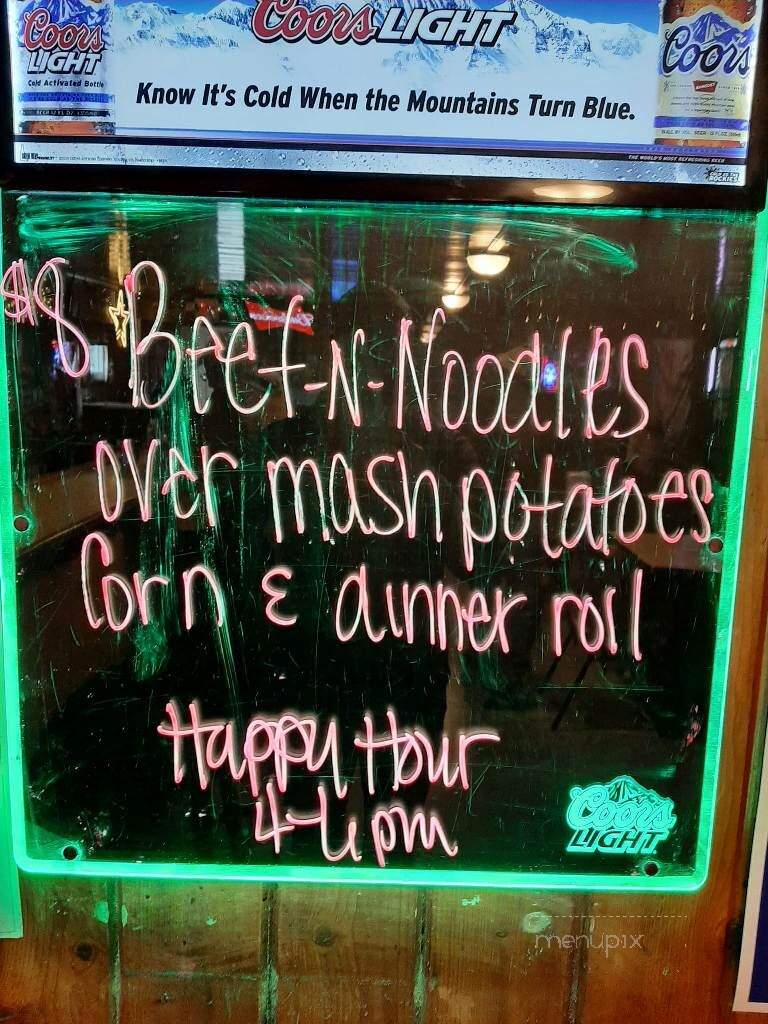 Coors LIGHT
Coors LIGHT
Cold Activated Bottle
Coors
BANQUET
Know It's Cold When the Mountains Turn Blue.
THE WORLD'S MOST REFRESHING BEER
$8 Beef-N-Noodles
over mash potatoes
Corn & dinner roll
Happy Hour
4-6pm
Coors
LIGHT
menupix